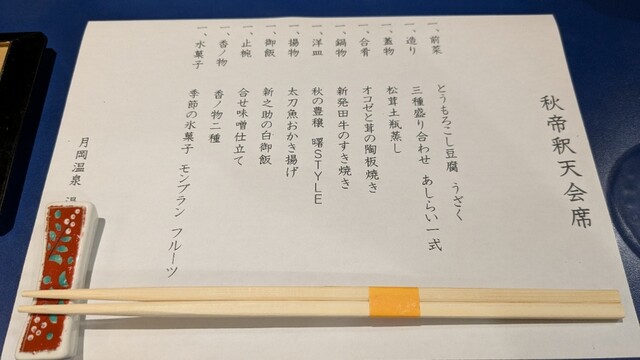 秋帝釈天会席
一、前菜 とうもろこし豆腐 うざく
一、造り 三種盛り合わせ あしらい一式
一、蓋物 松茸土瓶蒸し
一、合肴 オコゼと茸の陶板焼き
一、鍋物 新発田牛のすき焼き
一、洋皿 秋の豊穣 曙STYLE
一、揚物 太刀魚おかき揚げ
一、御飯 新之助の白御飯
一、止椀 合せ味噌仕立て
一、香ノ物 香ノ物二種
一、水菓子 季節の氷菓子 モンブラン フルーツ
月岡温泉